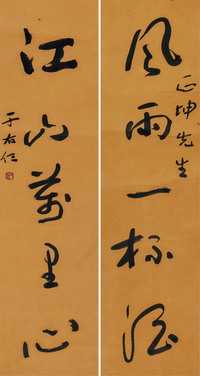 风雨一杯酒
正坤先生
江山万里心
于右任